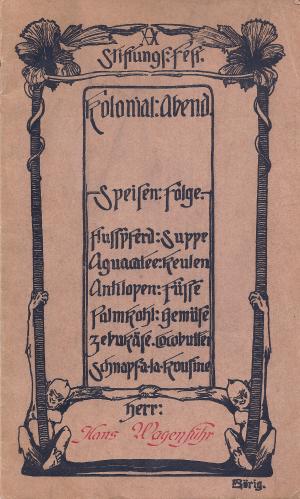 XX
Stiftungs:Fest.
Kolonial:Abend.
Speisen:Folge.
Flusspferd:Suppe
Aguacatee:Keulen
Antilopen:Füsse
Palmkohl:Gemüse
Zebukäse.Cocobutter
Schnapsa-la-Kousine
Herr:
Hans Wagenführ
Rörig.